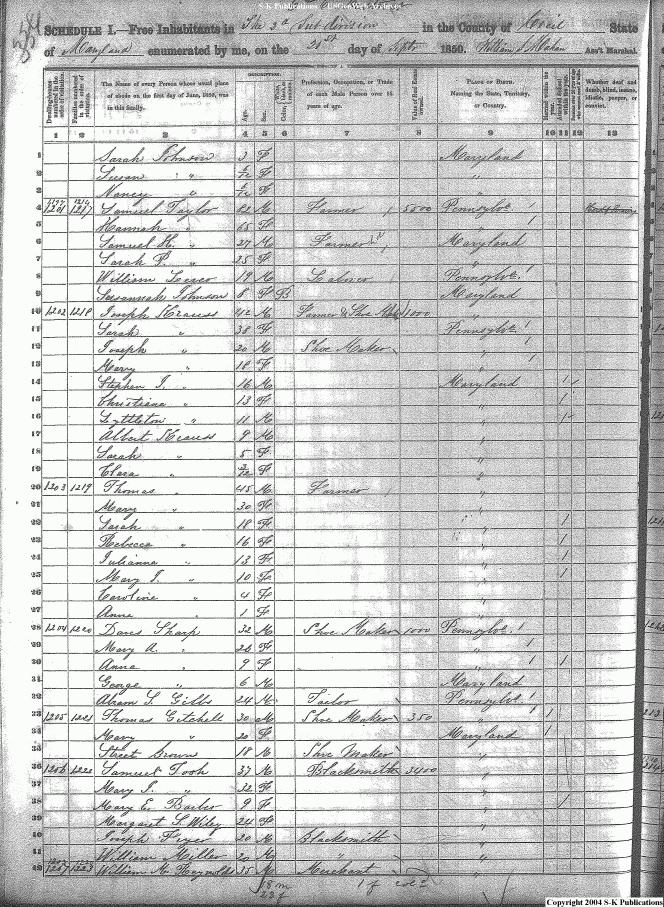 S-K Publications USGenWeb Archives
SCHEDULE I.—Free Inhabitants in The 3d Sub division in the County of Cecil State
of Maryland enumerated by me, on the 21st day of Septr 1850. Ass't Marshal.
Dwelling-houses numbered in the order of visitation.
Families numbered in the order of visitation.
The Name of every Person whose usual place of abode on the first day of June, 1850, was in this family.
DESCRIPTION.
Age.
Sex.
Color, White, black, or mulatto.
Profession, Occupation, or Trade of each Male Person over 15 years of age.
Value of Real Estate owned.
PLACE OF BIRTH. Naming the State, Territory, or Country.
Married within the year.
Whether deaf and dumb, blind, insane, idiotic, pauper, or convict.
1 2 3 4 5 6 7 8 9 10 11 12 13
1 Sarah Johnson 3 F Maryland
2 Susan " 6/12 F "
3 Nancy " 6/12 F "
4 1201 1217 Samuel Taylor 62 M Farmer 5500 Pennsylva.
5 Hannah " 65 F "
6 Samuel H. " 27 M Farmer Maryland
7 Sarah P. " 25 F "
8 William 19 M Laborer Pennsylva.
9 Susannah Johnson 8 F B Maryland
10 1202 1218 Joseph Krauss 42 M Farmer & Shoe Maker 1000 "
11 Sarah " 38 F Pennsylva.
12 Joseph " 20 M Shoe Maker "
13 Mary " 18 F "
14 Stephen J. " 16 M Maryland 1
15 Christiana " 13 F " 1
16 Lyttleton " 11 M " 1
17 Albert Krauss 9 M "
18 Sarah " 5 F "
19 Clara " F "
20 1203 1219 Thomas " 45 M Farmer "
21 Mary " 30 F "
22 Sarah " 18 F " 1
23 Rebecca " 16 F " 1
24 Julianna " 13 F " 1
25 Mary J. " 10 F " 1
26 Caroline " 4 F "
27 Anna " 1 F "
28 1204 1220 Davis Sharp 32 M Shoe Maker 1000 Pennsylva.
29 Mary A. " F "
30 Anna " 9 F " 1
31 George " 6 M Maryland
32 Abram S. Gibbs 24 M Tailor Pennsylva.
33 1205 1221 Thomas Gitchell 30 M Shoe Maker 350 " 1
34 Mary " 20 F Maryland 1
35 Street Brown 18 M Shoe Maker "
36 1206 1222 Samuel Tosh 37 M Blacksmith 3400 "
37 Mary J. " 32 F "
38 Mary E. 9 F " 1
39 Margaret S. Wiley 24 F "
40 Joseph 20 M Blacksmith "
41 William Miller 20 M " "
42 1207 1223 William M. Reynolds 35 M Merchant "
18 m
23 f
1 f cold
Copyright 2004 S-K Publications